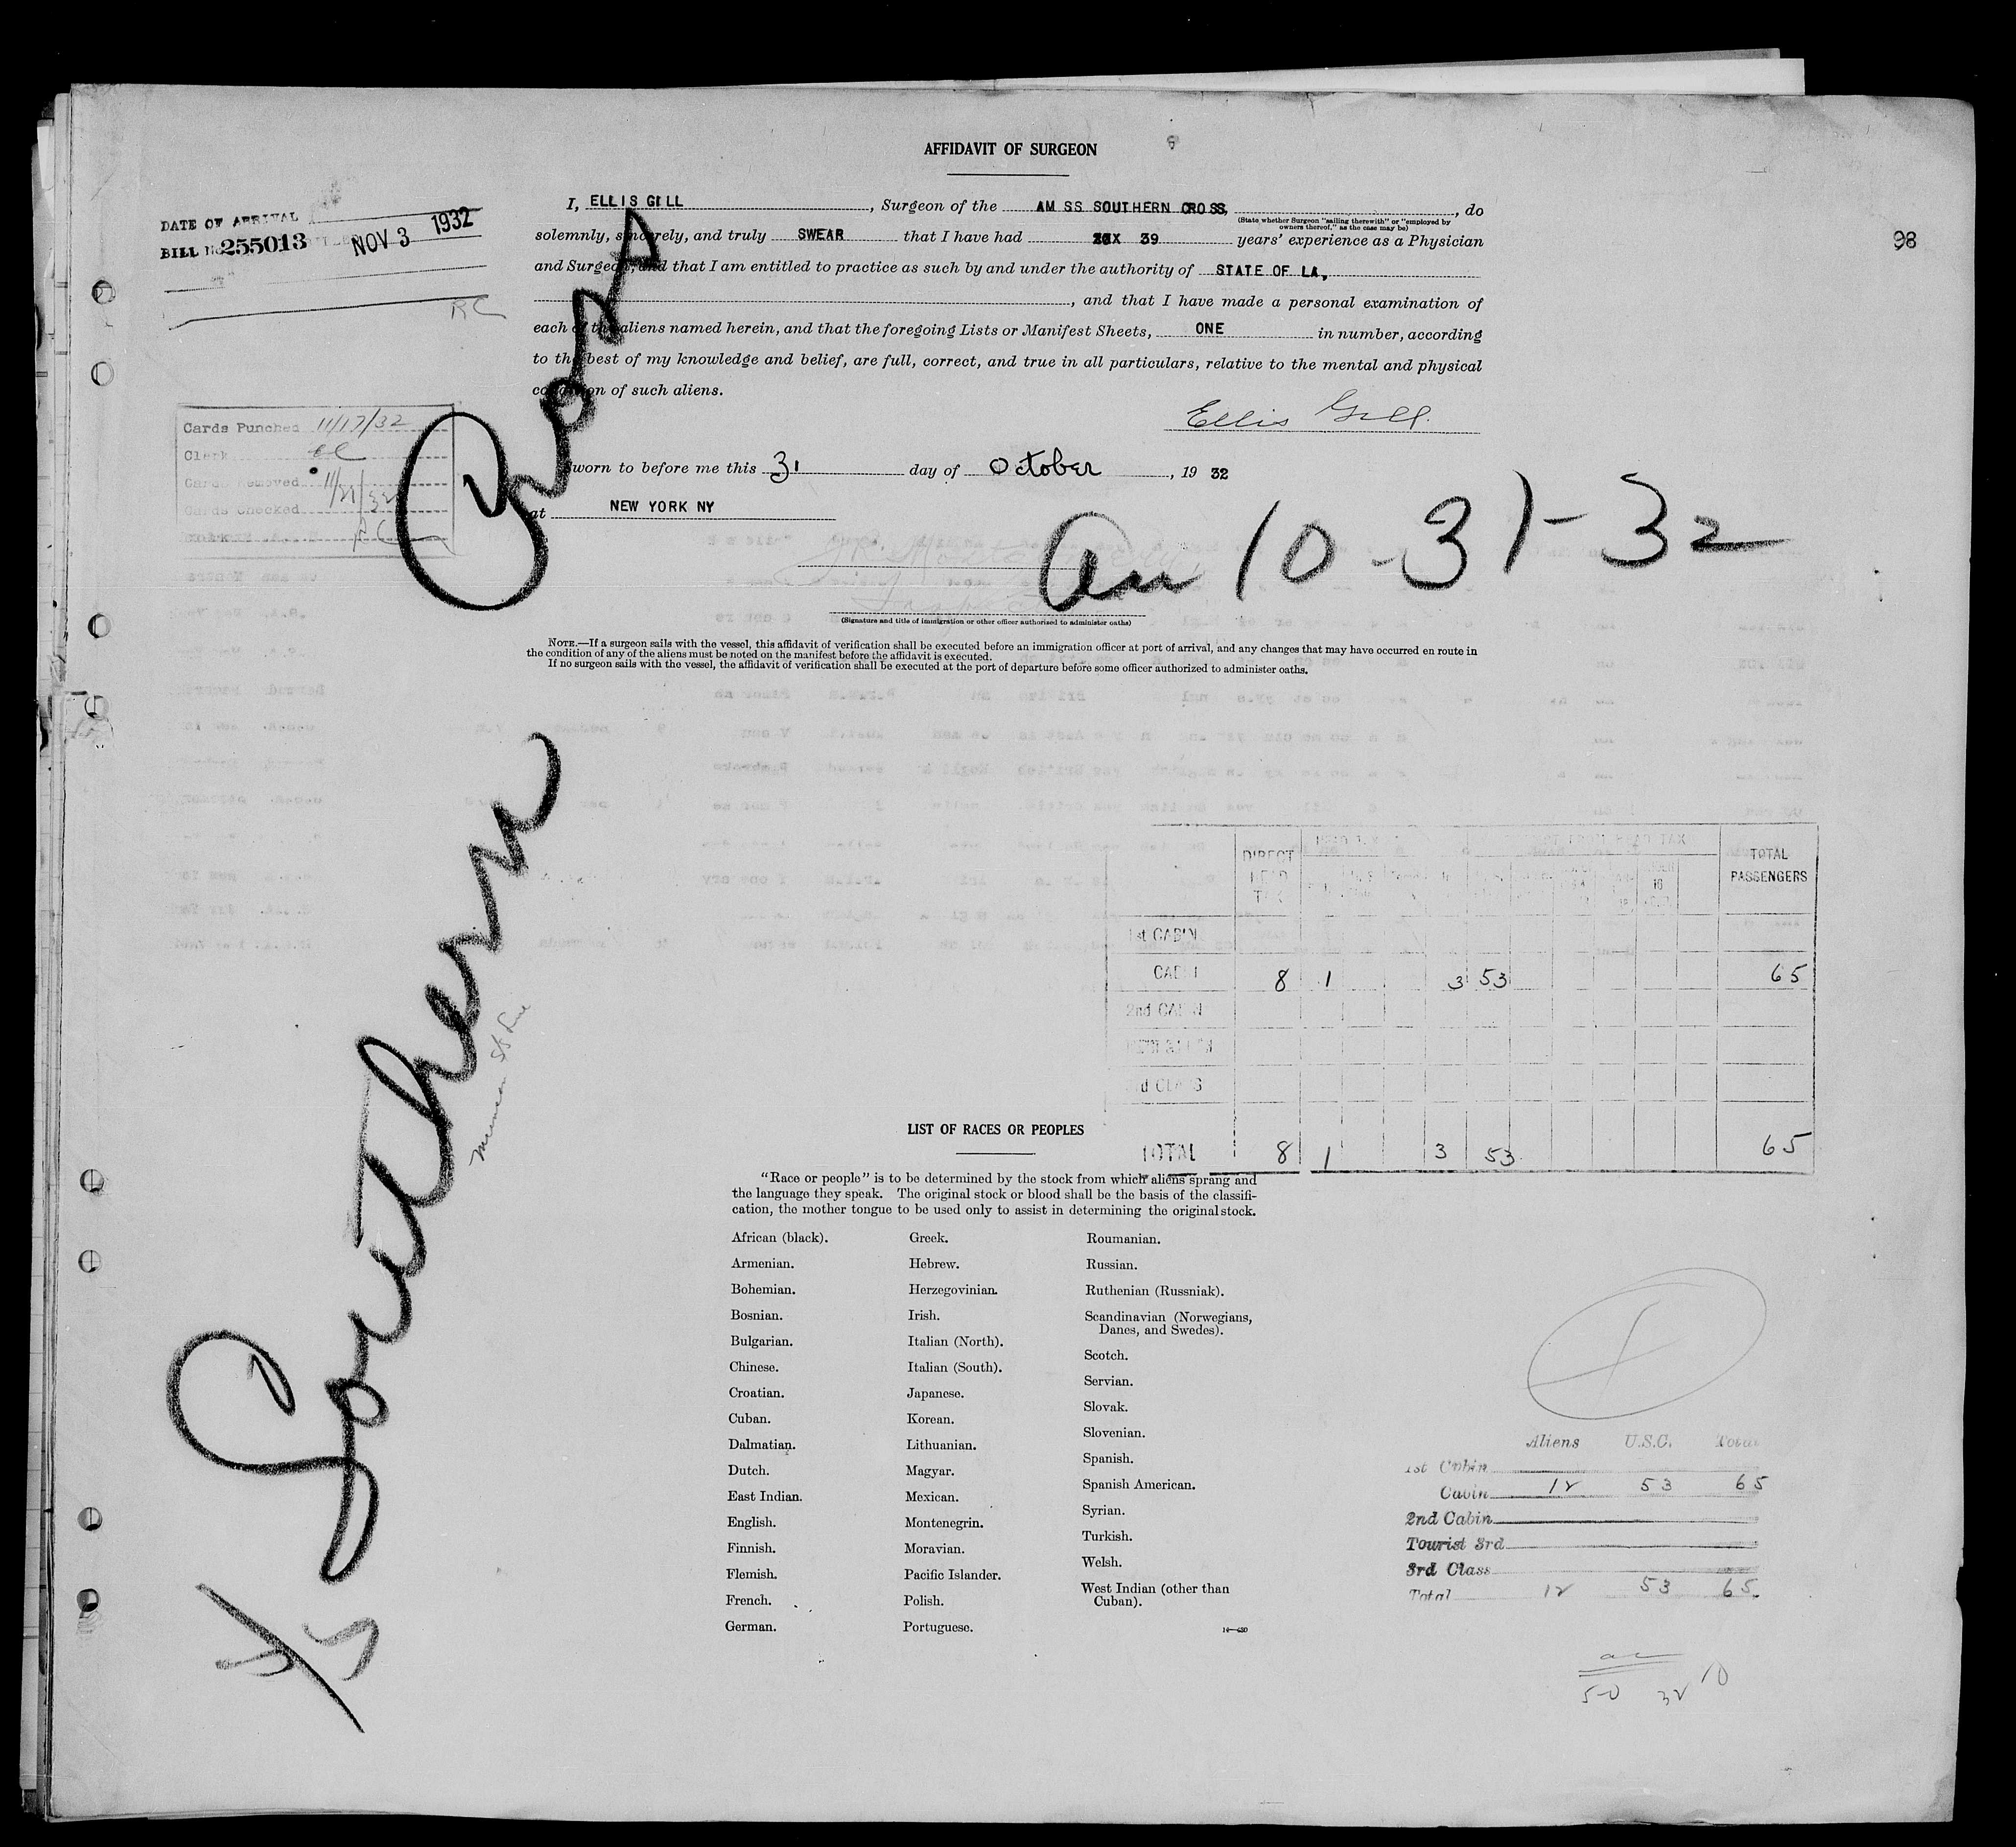 AFFIDAVIT OF SURGEON
DATE OF ARRIVAL
BILL No 255013 NOV 3 1932
RC
98
I, ELLIS GILL, Surgeon of the AM SS SOUTHERN CROSS, , do
(State whether Surgeon "sailing therewith" or "employed by
owners thereof," as the case may be)
solemnly, sincerely, and truly SWEAR that I have had 39 years' experience as a Physician
and Surgeon, and that I am entitled to practice as such by and under the authority of STATE OF LA,
, and that I have made a personal examination of
each of the aliens named herein, and that the foregoing Lists or Manifest Sheets, ONE in number, according
to the best of my knowledge and belief, are full, correct, and true in all particulars, relative to the mental and physical
condition of such aliens.
Ellis Gill.
Cards Punched 11/17/32
Clerk
Cards Removed 11/21/32
Cards Checked
Sworn to before me this 31 day of October, 19 32
at NEW YORK NY
Arr 10-31-32
(Signature and title of immigration or other officer authorized to administer oaths)
NOTE.—If a surgeon sails with the vessel, this affidavit of verification shall be executed before an immigration officer at port of arrival, and any changes that may have occurred en route in
the condition of any of the aliens must be noted on the manifest before the affidavit is executed.
If no surgeon sails with the vessel, the affidavit of verification shall be executed at the port of departure before some officer authorized to administer oaths.
Southern Cross
Munson SS Line
DIRECT HEAD TAX
TOTAL PASSENGERS
1st CABIN
CABIN 8 1 3 53 65
2nd CABIN
3rd CLASS
TOTAL 8 1 3 53 65
LIST OF RACES OR PEOPLES
"Race or people" is to be determined by the stock from which aliens sprang and
the language they speak. The original stock or blood shall be the basis of the classifi-
cation, the mother tongue to be used only to assist in determining the original stock.
African (black).
Armenian.
Bohemian.
Bosnian.
Bulgarian.
Chinese.
Croatian.
Cuban.
Dalmatian.
Dutch.
East Indian.
English.
Finnish.
Flemish.
French.
German.
Greek.
Hebrew.
Herzegovinian.
Irish.
Italian (North).
Italian (South).
Japanese.
Korean.
Lithuanian.
Magyar.
Mexican.
Montenegrin.
Moravian.
Pacific Islander.
Polish.
Portuguese.
Roumanian.
Russian.
Ruthenian (Russniak).
Scandinavian (Norwegians,
Danes, and Swedes).
Scotch.
Servian.
Slovak.
Slovenian.
Spanish.
Spanish American.
Syrian.
Turkish.
Welsh.
West Indian (other than
Cuban).
Aliens U.S.C. Total
1st Cabin
Cabin 12 53 65
2nd Cabin
Tourist 3rd
3rd Class
Total 12 53 65